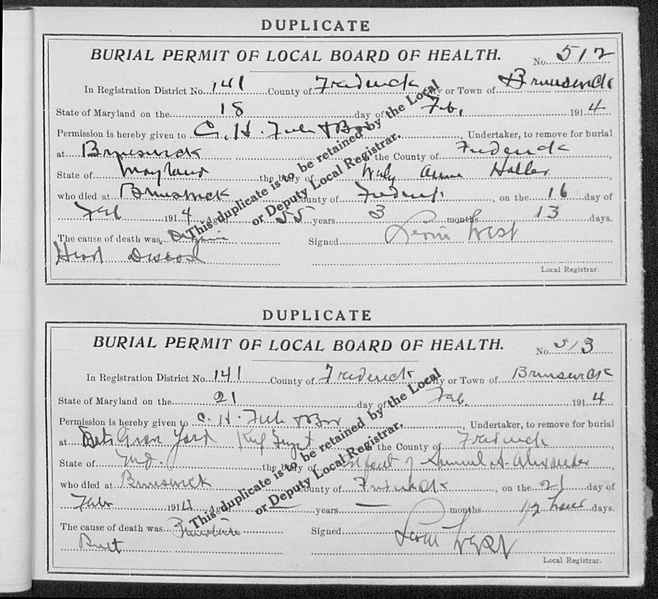 DUPLICATE
BURIAL PERMIT OF LOCAL BOARD OF HEALTH.
No. 512
In Registration District No. 141 County of Frederick City or Town of Brunswick
State of Maryland on the 18 day of Feb. 1914
Permission is hereby given to C. H. & Bro Undertaker, to remove for burial
at Brunswick in the County of Frederick
State of Maryland the body of Annie Haller
who died at Brunswick County of Frederick, on the 16 day of
Feb 1914 55 years 3 months 13 days.
The cause of death was Signed West
Local Registrar.
This duplicate is to be retained by the Local
or Deputy Local Registrar.
DUPLICATE
BURIAL PERMIT OF LOCAL BOARD OF HEALTH.
No. 513
In Registration District No. 141 County of Frederick City or Town of Brunswick
State of Maryland on the 21 day of Feb. 1914
Permission is hereby given to C. H. & Bro Undertaker, to remove for burial
at Yard in the County of Frederick
State of Md. the body of Infant of Samuel A. Alexander
who died at Brunswick County of Frederick, on the 21 day of
Feb 1914 — years — months 1/2 hour days.
The cause of death was Premature Signed West
Local Registrar.
This duplicate is to be retained by the Local
or Deputy Local Registrar.